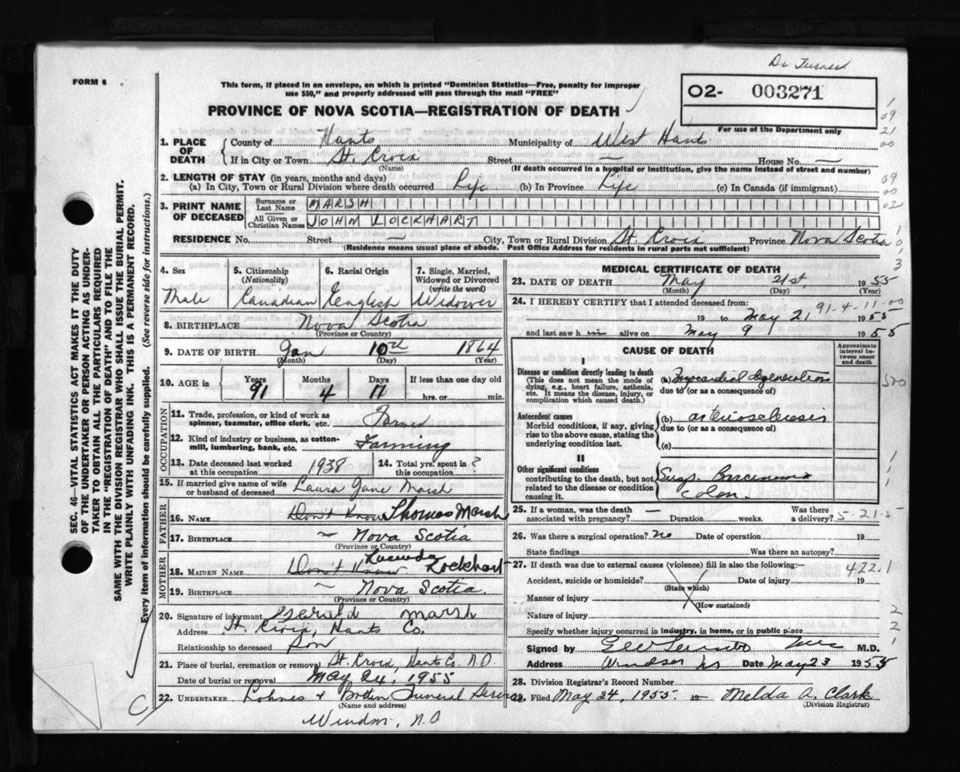 Dr Turner
FORM 6
This form, if placed in an envelope, on which is printed "Dominion Statistics—Free, penalty for improper
use $50," and properly addressed will pass through the mail "FREE"
PROVINCE OF NOVA SCOTIA—REGISTRATION OF DEATH
O2- 003271
For use of the Department only
1. PLACE OF DEATH
County of Hants Municipality of West Hants
If in City or Town St. Croix Street — House No. —
(Name) (If death occurred in a hospital or institution, give the name instead of street and number)
2. LENGTH OF STAY (in years, months and days)
(a) In City, Town or Rural Division where death occurred Life (b) In Province Life (c) In Canada (if immigrant)
3. PRINT NAME OF DECEASED
Surname or Last Name MARSH
All Given or Christian Names JOHN LOCKHART
RESIDENCE No. Street — City, Town or Rural Division St. Croix Province Nova Scotia
(Residence means usual place of abode. Post Office Address for residents in rural parts not sufficient)
4. Sex Male
5. Citizenship (Nationality) Canadian
6. Racial Origin English
7. Single, Married, Widowed or Divorced (write the word) Widower
8. BIRTHPLACE Nova Scotia
(Province or Country)
9. DATE OF BIRTH Jan 10th 1864
(Month) (Day) (Year)
10. AGE in Years 91 Months 4 Days 11 If less than one day old
hrs. or min.
OCCUPATION
11. Trade, profession, or kind of work as spinner, teamster, office clerk, etc. Farmer
12. Kind of industry or business, as cotton-mill, lumbering, bank, etc. Farming
13. Date deceased last worked at this occupation 1938
14. Total yrs. spent in this occupation ?
15. If married give name of wife or husband of deceased Laura Jane Marsh
FATHER
16. NAME Don't Know Thomas Marsh
17. BIRTHPLACE ~ Nova Scotia
(Province or Country)
MOTHER
18. MAIDEN NAME Don't Know Lucinda Lockhart
19. BIRTHPLACE ~ Nova Scotia.
(Province or Country)
20. Signature of informant Gerald Marsh
Address St. Croix, Hants Co.
Relationship to deceased Son
21. Place of burial, cremation or removal St. Croix, Hants Co. N.S
Date of burial or removal May 24, 1955
22. UNDERTAKER Funeral Service
(Name and address)
Windsor, N.S
MEDICAL CERTIFICATE OF DEATH
23. DATE OF DEATH May 21st 1955
(Month) (Day) (Year)
24. I HEREBY CERTIFY that I attended deceased from: 91-4-11-00
19 to May 21 1955
and last saw him alive on May 9 1955
CAUSE OF DEATH
Approximate interval between onset and death
I
Disease or condition directly leading to death
(This does not mean the mode of dying, e.g., heart failure, asthenia, etc. It means the disease, injury, or complication which caused death.)
(a) Myocardial degeneration
due to (or as a consequence of)
Antecedent causes
Morbid conditions, if any, giving rise to the above cause, stating the underlying condition last.
(b) arteriosclerosis
due to (or as a consequence of)
(c)
II
Other significant conditions contributing to the death, but not related to the disease or condition causing it.
Carcinoma
Colon.
25. If a woman, was the death associated with pregnancy? — Duration weeks. Was there a delivery? 5-21-5
26. Was there a surgical operation? no Date of operation 19
State findings Was there an autopsy?
27. If death was due to external causes (violence) fill in also the following:— 422.1
Accident, suicide or homicide? Date of injury 19
(State which)
Manner of injury
(How sustained)
Nature of injury
Specify whether injury occurred in industry, in home, or in public place
Signed by M.D.
Address Windsor NS Date May 23 1955
28. Division Registrar's Record Number
29. Filed May 24, 1955 Melda A. Clark
(Division Registrar)
SEC. 46—VITAL STATISTICS ACT MAKES IT THE DUTY
OF THE UNDERTAKER OR PERSON ACTING AS UNDER-
TAKER TO OBTAIN ALL THE PARTICULARS REQUIRED
IN THE "REGISTRATION OF DEATH" AND TO FILE THE
SAME WITH THE DIVISION REGISTRAR WHO SHALL ISSUE THE BURIAL PERMIT.
WRITE PLAINLY WITH UNFADING INK. THIS IS A PERMANENT RECORD.
Every item of information should be carefully supplied. (See reverse side for instructions.)